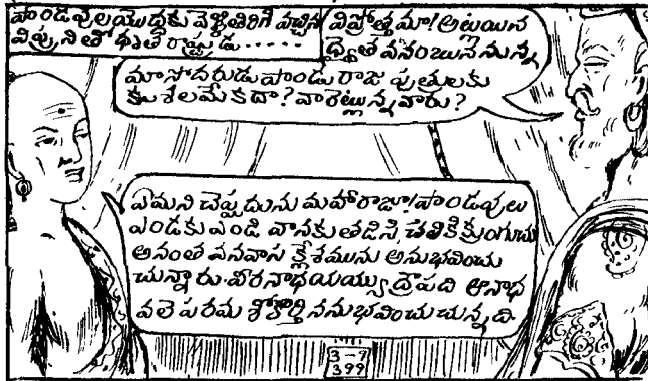 పాండవులయొద్దకు వెళ్ళితిరిగి వచ్చిన
విప్రునితో ధృతరాష్ట్రుడు.....
విప్రోత్తమా! అట్లయిన
ద్వైతవనంబుననేనున్న
మాసోదరుడు పాండురాజు పుత్రులకు
కుశలమేకదా? వారెట్లున్నవారు?
ఏమని చెప్పుదును మహారాజా! పాండవులు
ఎండకు ఎండి వానకు తడిసి, చలికి క్రుంగుచు
అనంత వనవాస క్లేశమును అనుభవించు
చున్నారు. వీరనాథయయ్యు ద్రౌపది అనాథ
వలె పరమ శోకార్తి ననుభవించుచున్నది.
3-9
399